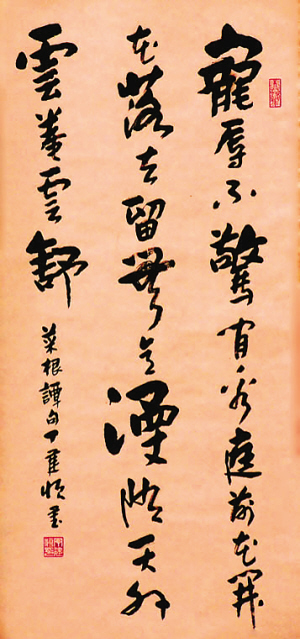 寵辱不驚閒看庭前花開
花落去留無意漫隨天外
雲卷雲舒
菜根譚句